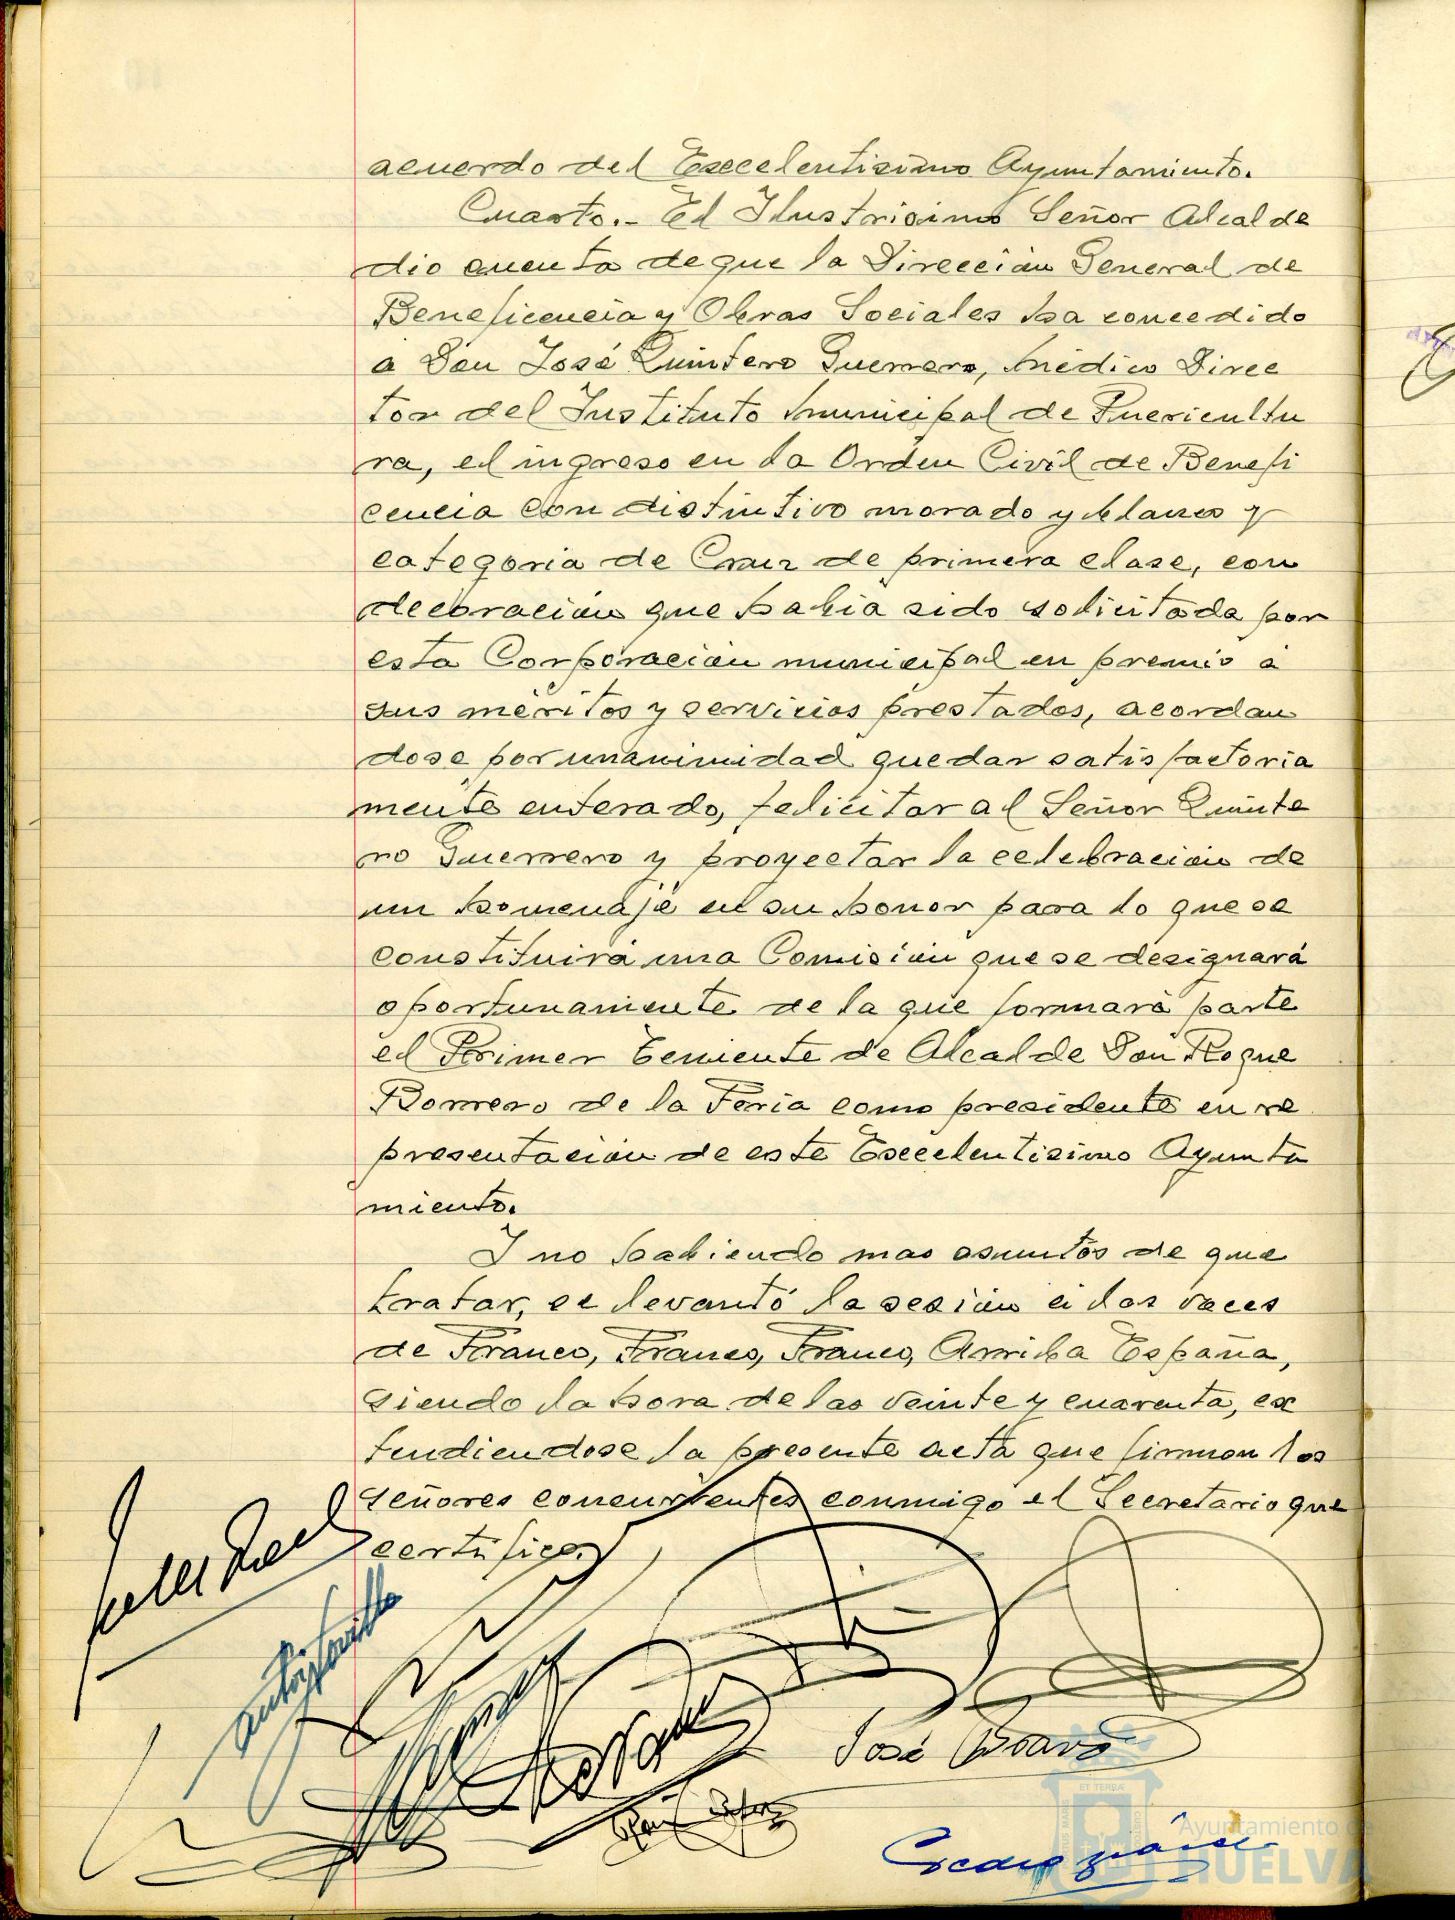 acuerdo del Excelentisimo Ayuntamiento.
Cuarto.- El Ilustrisimo Señor Alcalde
dio cuenta de que la Dirección General de
Beneficencia y Obras Sociales ha concedido
a Don José Quintero Guerrero, Médico Direc
tor del Instituto Municipal de Puericultu
ra, el ingreso en la Orden Civil de Benefi
cencia con distintivo morado y blanco y
categoria de Cruz de primera clase, con
decoración que habia sido solicitada por
esta Corporación municipal en premio á
sus méritos y servicios prestados, acordan
dose por unanimidad quedar satisfactoria
mente enterado, felicitar al Señor Quinte
ro Guerrero y proyectar la celebración de
un homenaje en su honor para lo que se
constituirá una Comisión que se designará
oportunamente de la que formará parte
el Primer Teniente de Alcalde Don Roque
Borrero de la Feria como presidente en re
presentación de este Excelentisimo Ayunta
miento.
Y no habiendo mas asuntos de que
tratar, se levantó la sesión á las voces
de Franco, Franco, Franco, Arriba España,
siendo la hora de las veinte y cuarenta, ex
tendiendose la presente acta que firman los
señores concurrentes conmigo el Secretario que
certifico.
José Bravo
ET TERRÆ
Ayuntamiento de
HUELVA